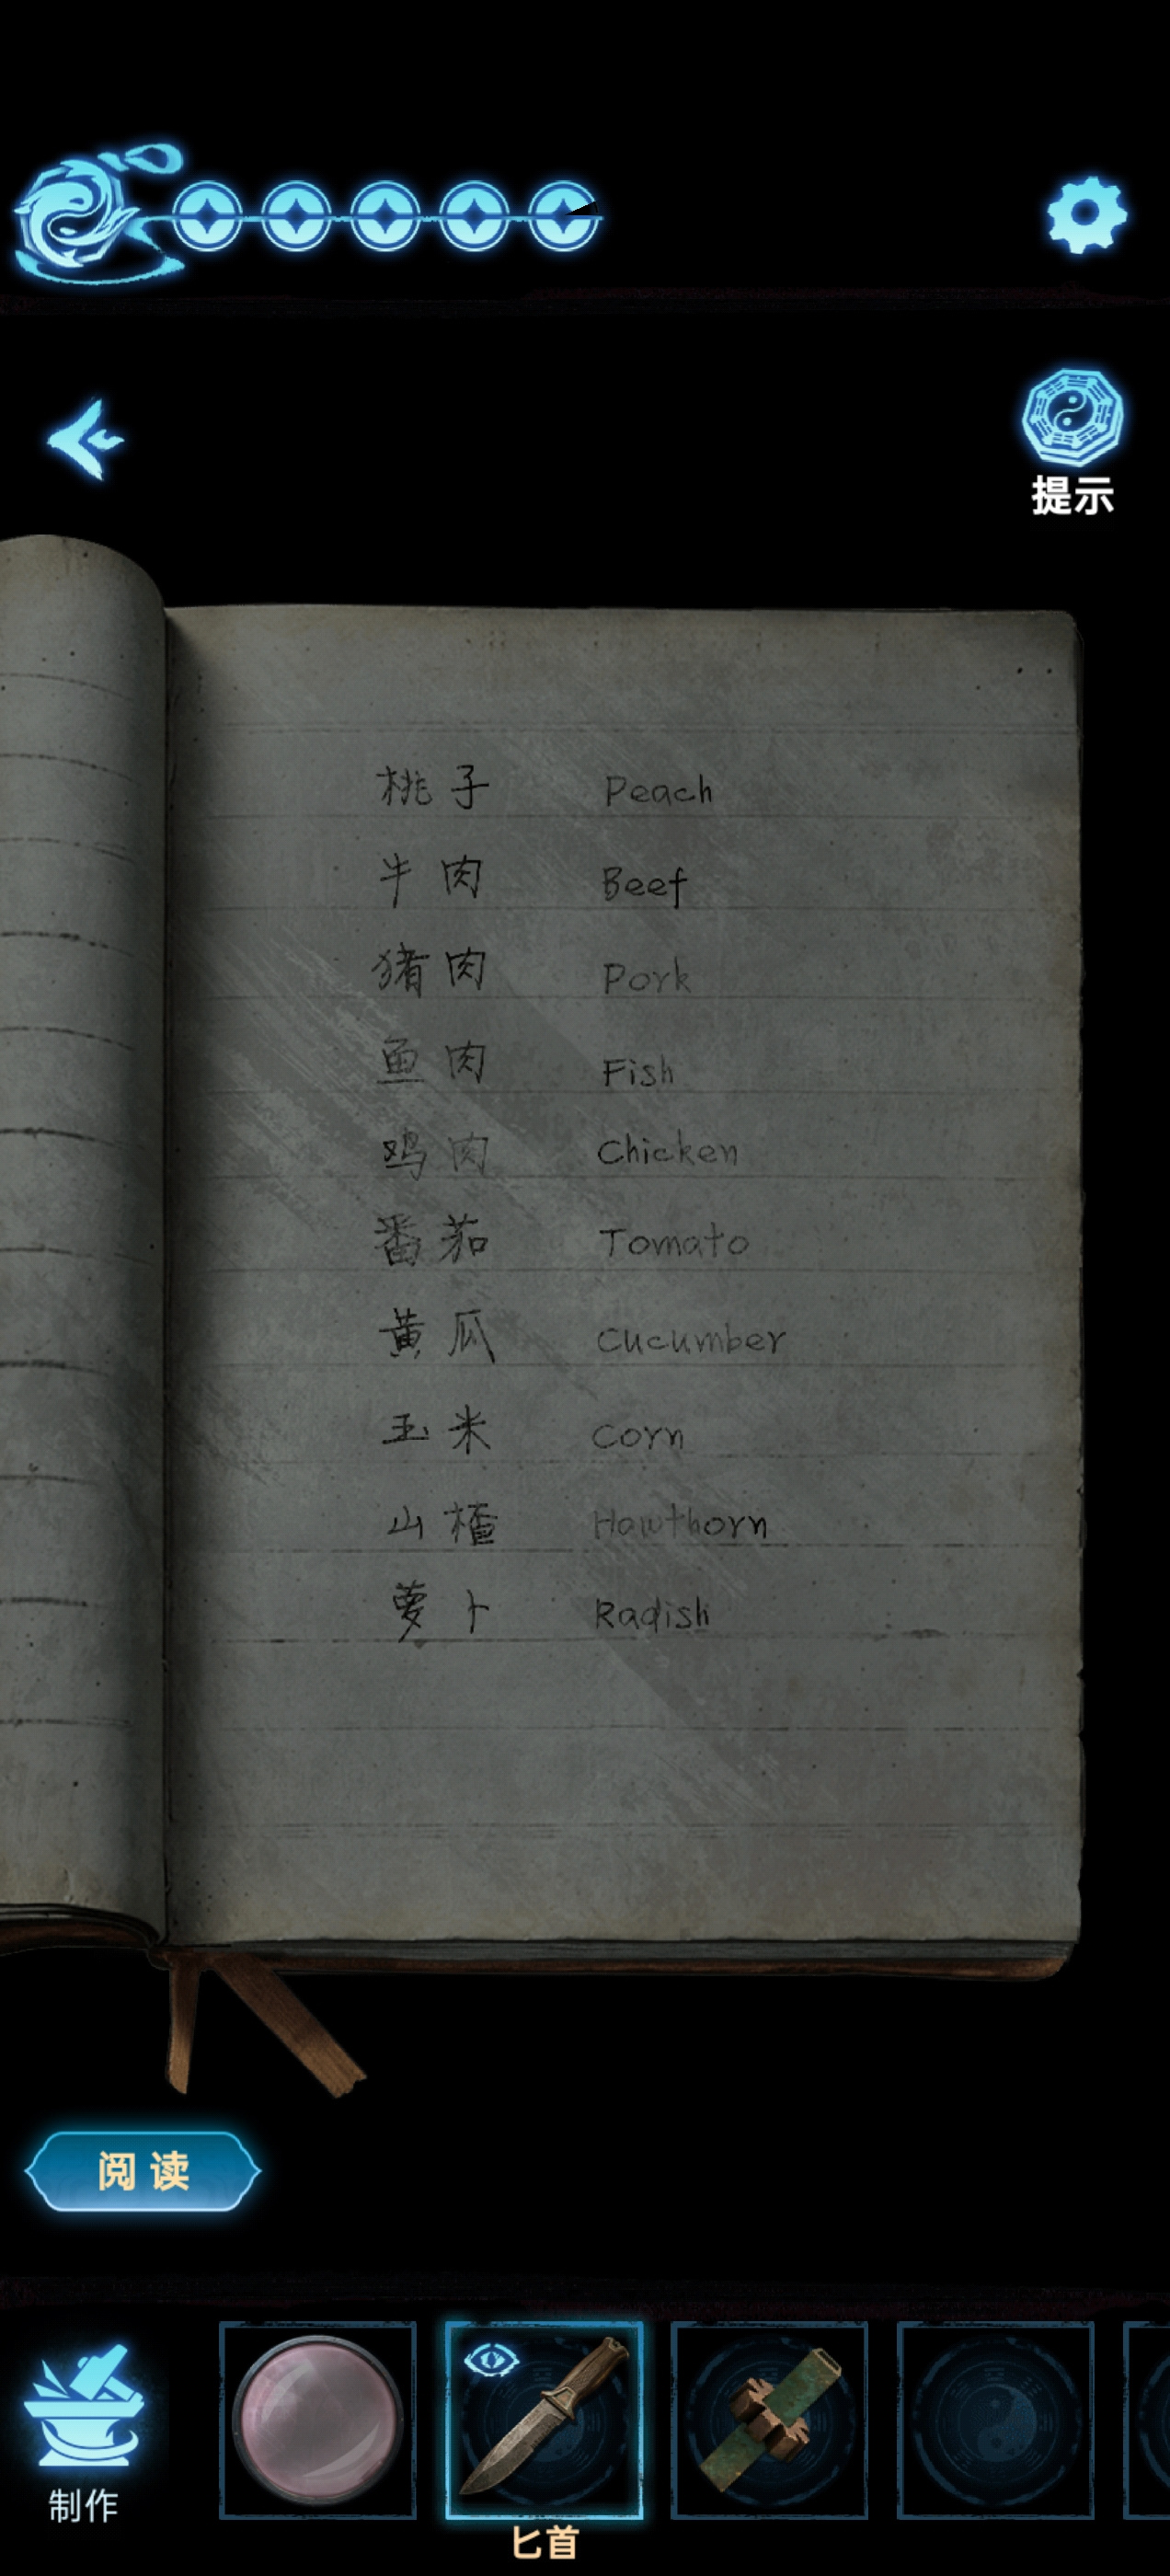 提示
桃子 Peach
牛肉 Beef
猪肉 Pork
鱼肉 Fish
鸡肉 Chicken
番茄 Tomato
黄瓜 Cucumber
玉米 Corn
山楂 Hawthorn
萝卜 Radish
阅读
制作
匕首